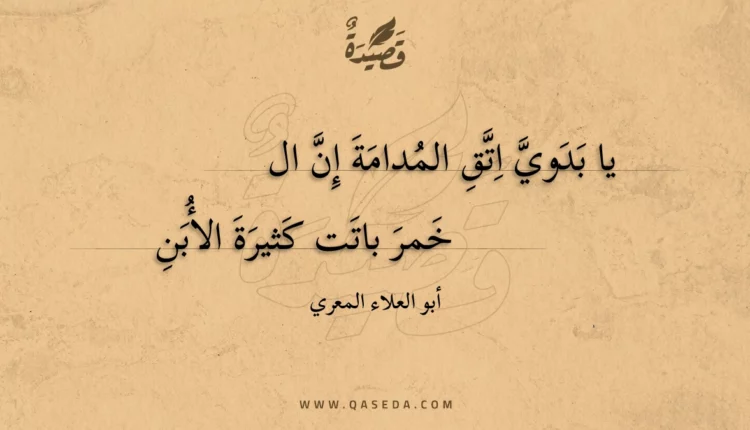 قَصِيْدَةٌ
يا بَدَويَّ اِتَّقِ المُدامَةَ إِنَّ ال
خَمرَ باتَت كَثيرَةَ الأُبَنِ
أبو العلاء المعري
WWW.QASEDA.COM